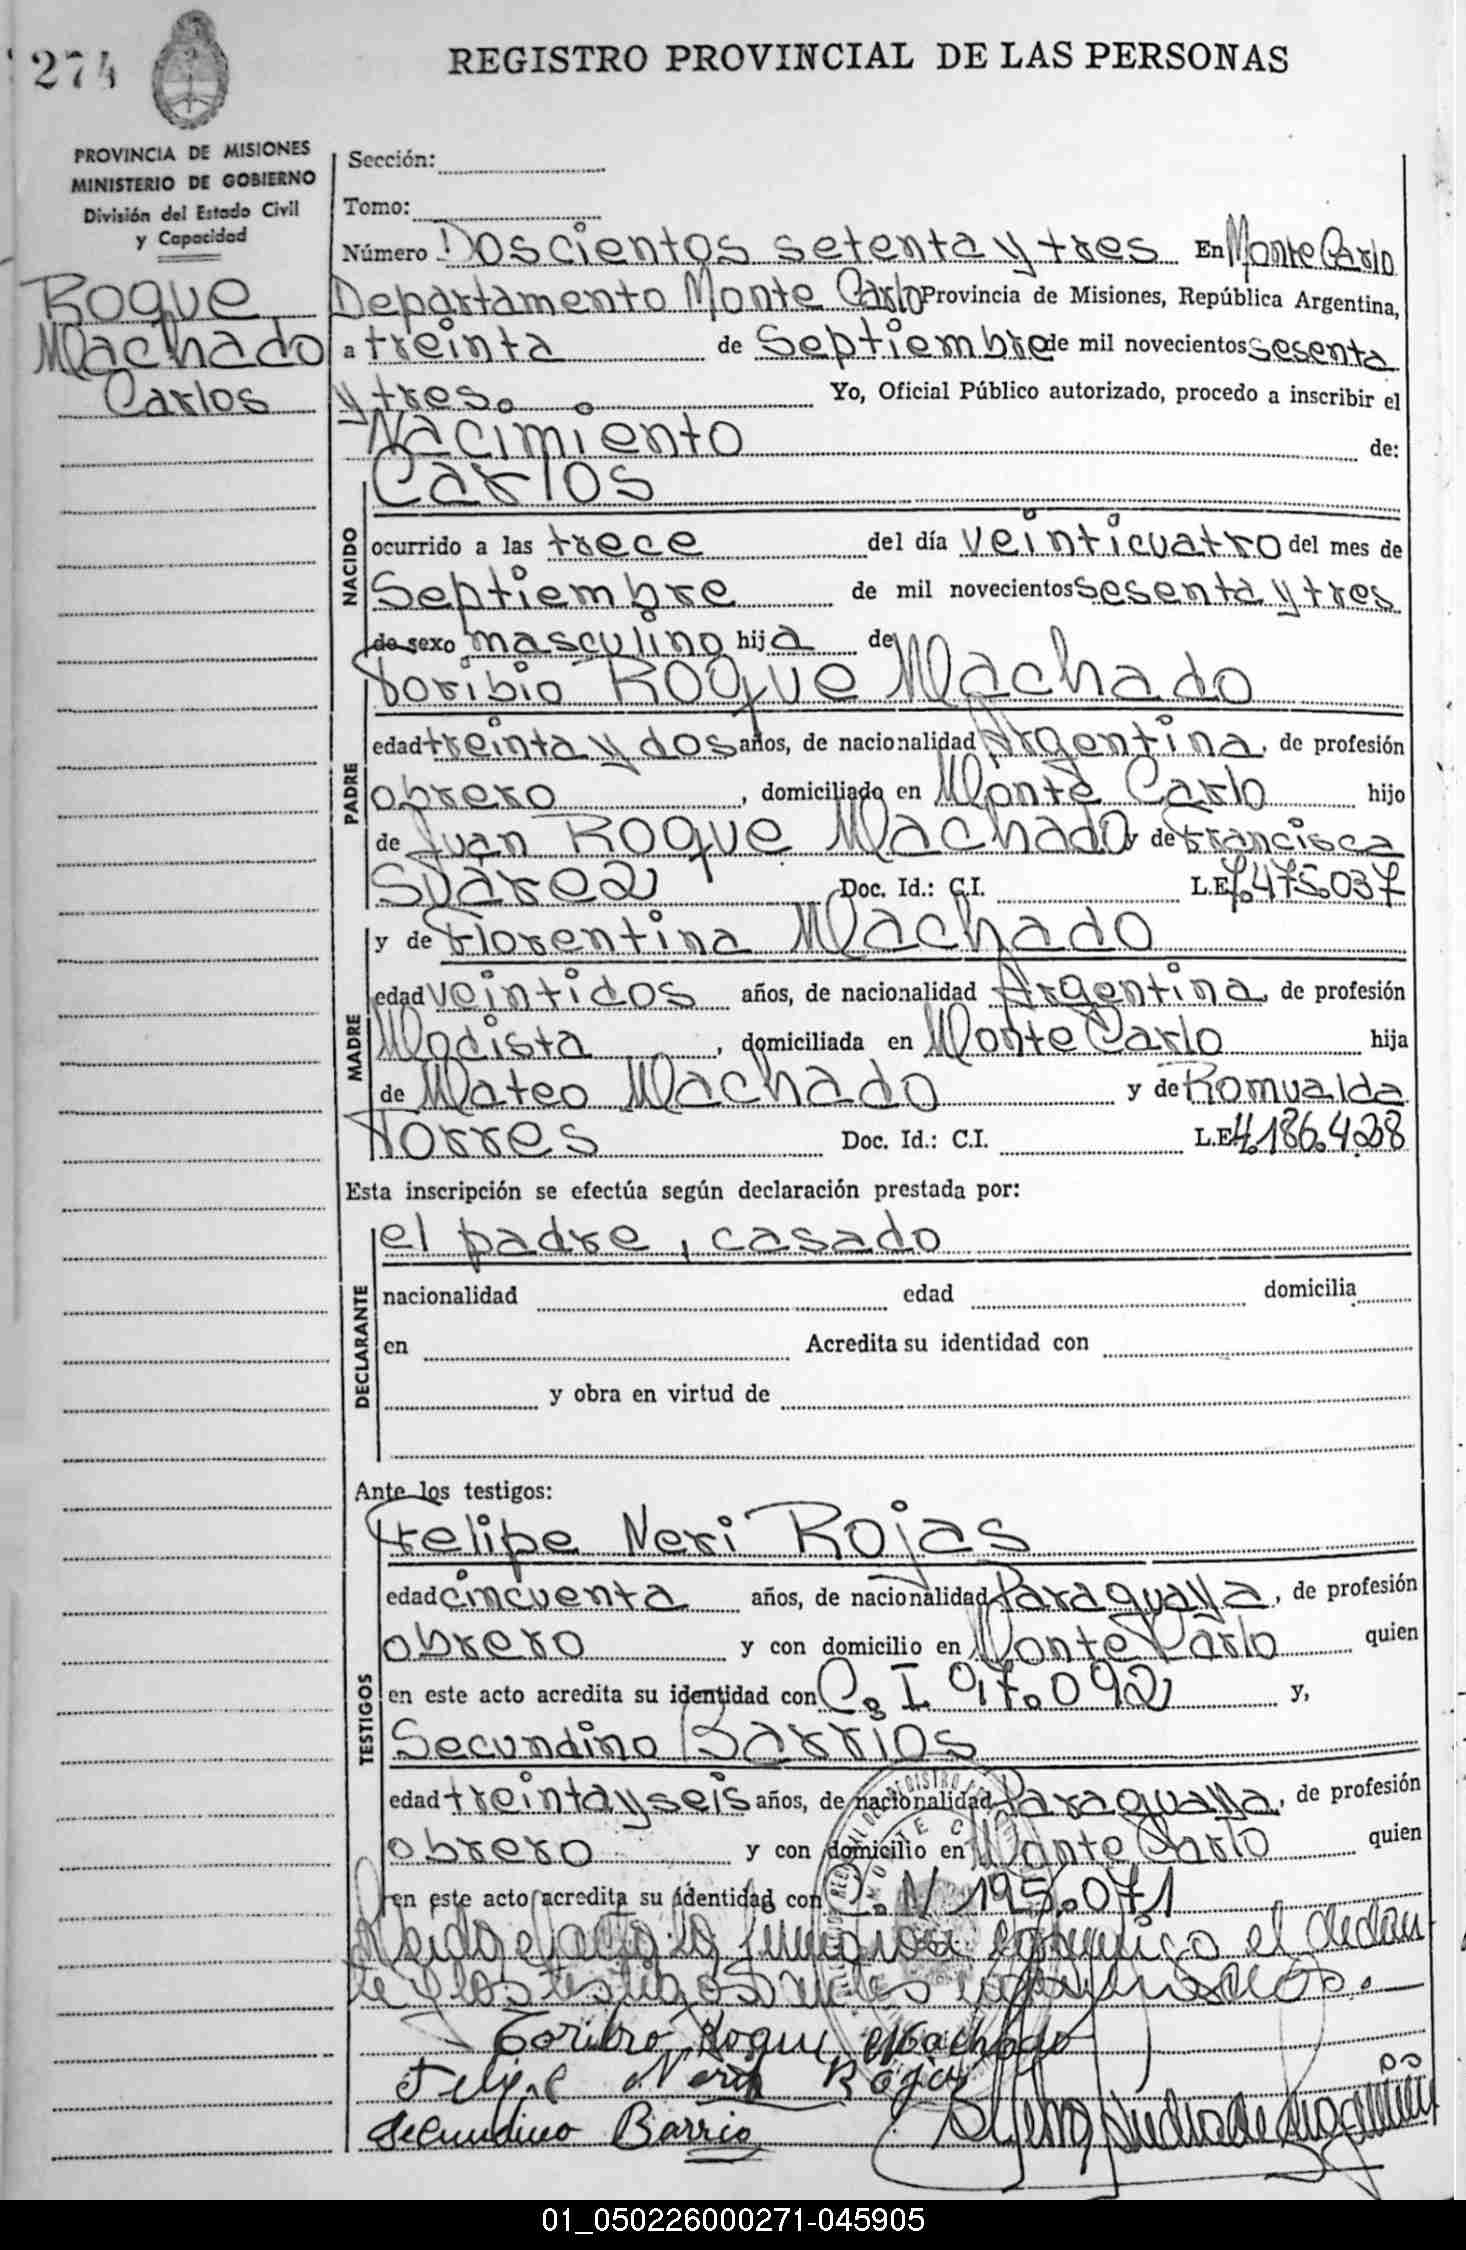 274
REGISTRO PROVINCIAL DE LAS PERSONAS
PROVINCIA DE MISIONES
MINISTERIO DE GOBIERNO
División del Estado Civil
y Capacidad
Roque
Machado
Carlos
Sección:
Tomo:
Número Doscientos setenta y tres En Monte Carlo
Departamento Monte Carlo Provincia de Misiones, República Argentina,
a treinta de Septiembre de mil novecientos sesenta
y tres. Yo, Oficial Público autorizado, procedo a inscribir el
Nacimiento de:
NACIDO
Carlos
ocurrido a las trece del día veinticuatro del mes de
Septiembre de mil novecientos sesenta y tres
de sexo masculino hija de
PADRE
Toribio Roque Machado
edad treinta y dos años, de nacionalidad Argentina, de profesión
obrero, domiciliado en Monte Carlo hijo
de Juan Roque Machado y de Francisca
Suárez Doc. Id.: C.I. L.E 7.475.037
MADRE
y de Florentina Machado
edad veintidos años, de nacionalidad Argentina, de profesión
Modista, domiciliada en Monte Carlo hija
de Mateo Machado y de Romualda
Torres Doc. Id.: C.I. L.E 4.186.428
Esta inscripción se efectúa según declaración prestada por:
DECLARANTE
el padre, casado
nacionalidad edad domicilia
en Acredita su identidad con
y obra en virtud de
Ante los testigos:
TESTIGOS
Felipe Neri Rojas
edad cincuenta años, de nacionalidad Paraguaya, de profesión
obrero y con domicilio en Monte Carlo quien
en este acto acredita su identidad con C. I. 97.092 y,
Secundino Barrios
edad treinta y seis años, de nacionalidad Paraguaya, de profesión
obrero y con domicilio en Monte Carlo quien
en este acto acredita su identidad con C. N 195.071
Leida el acta la firman conmigo el declaran
te y los testigos antes expresados.
Toribio Roque Machado
Felipe Neris Rojas
Secundino Barrio
01_050226000271-045905